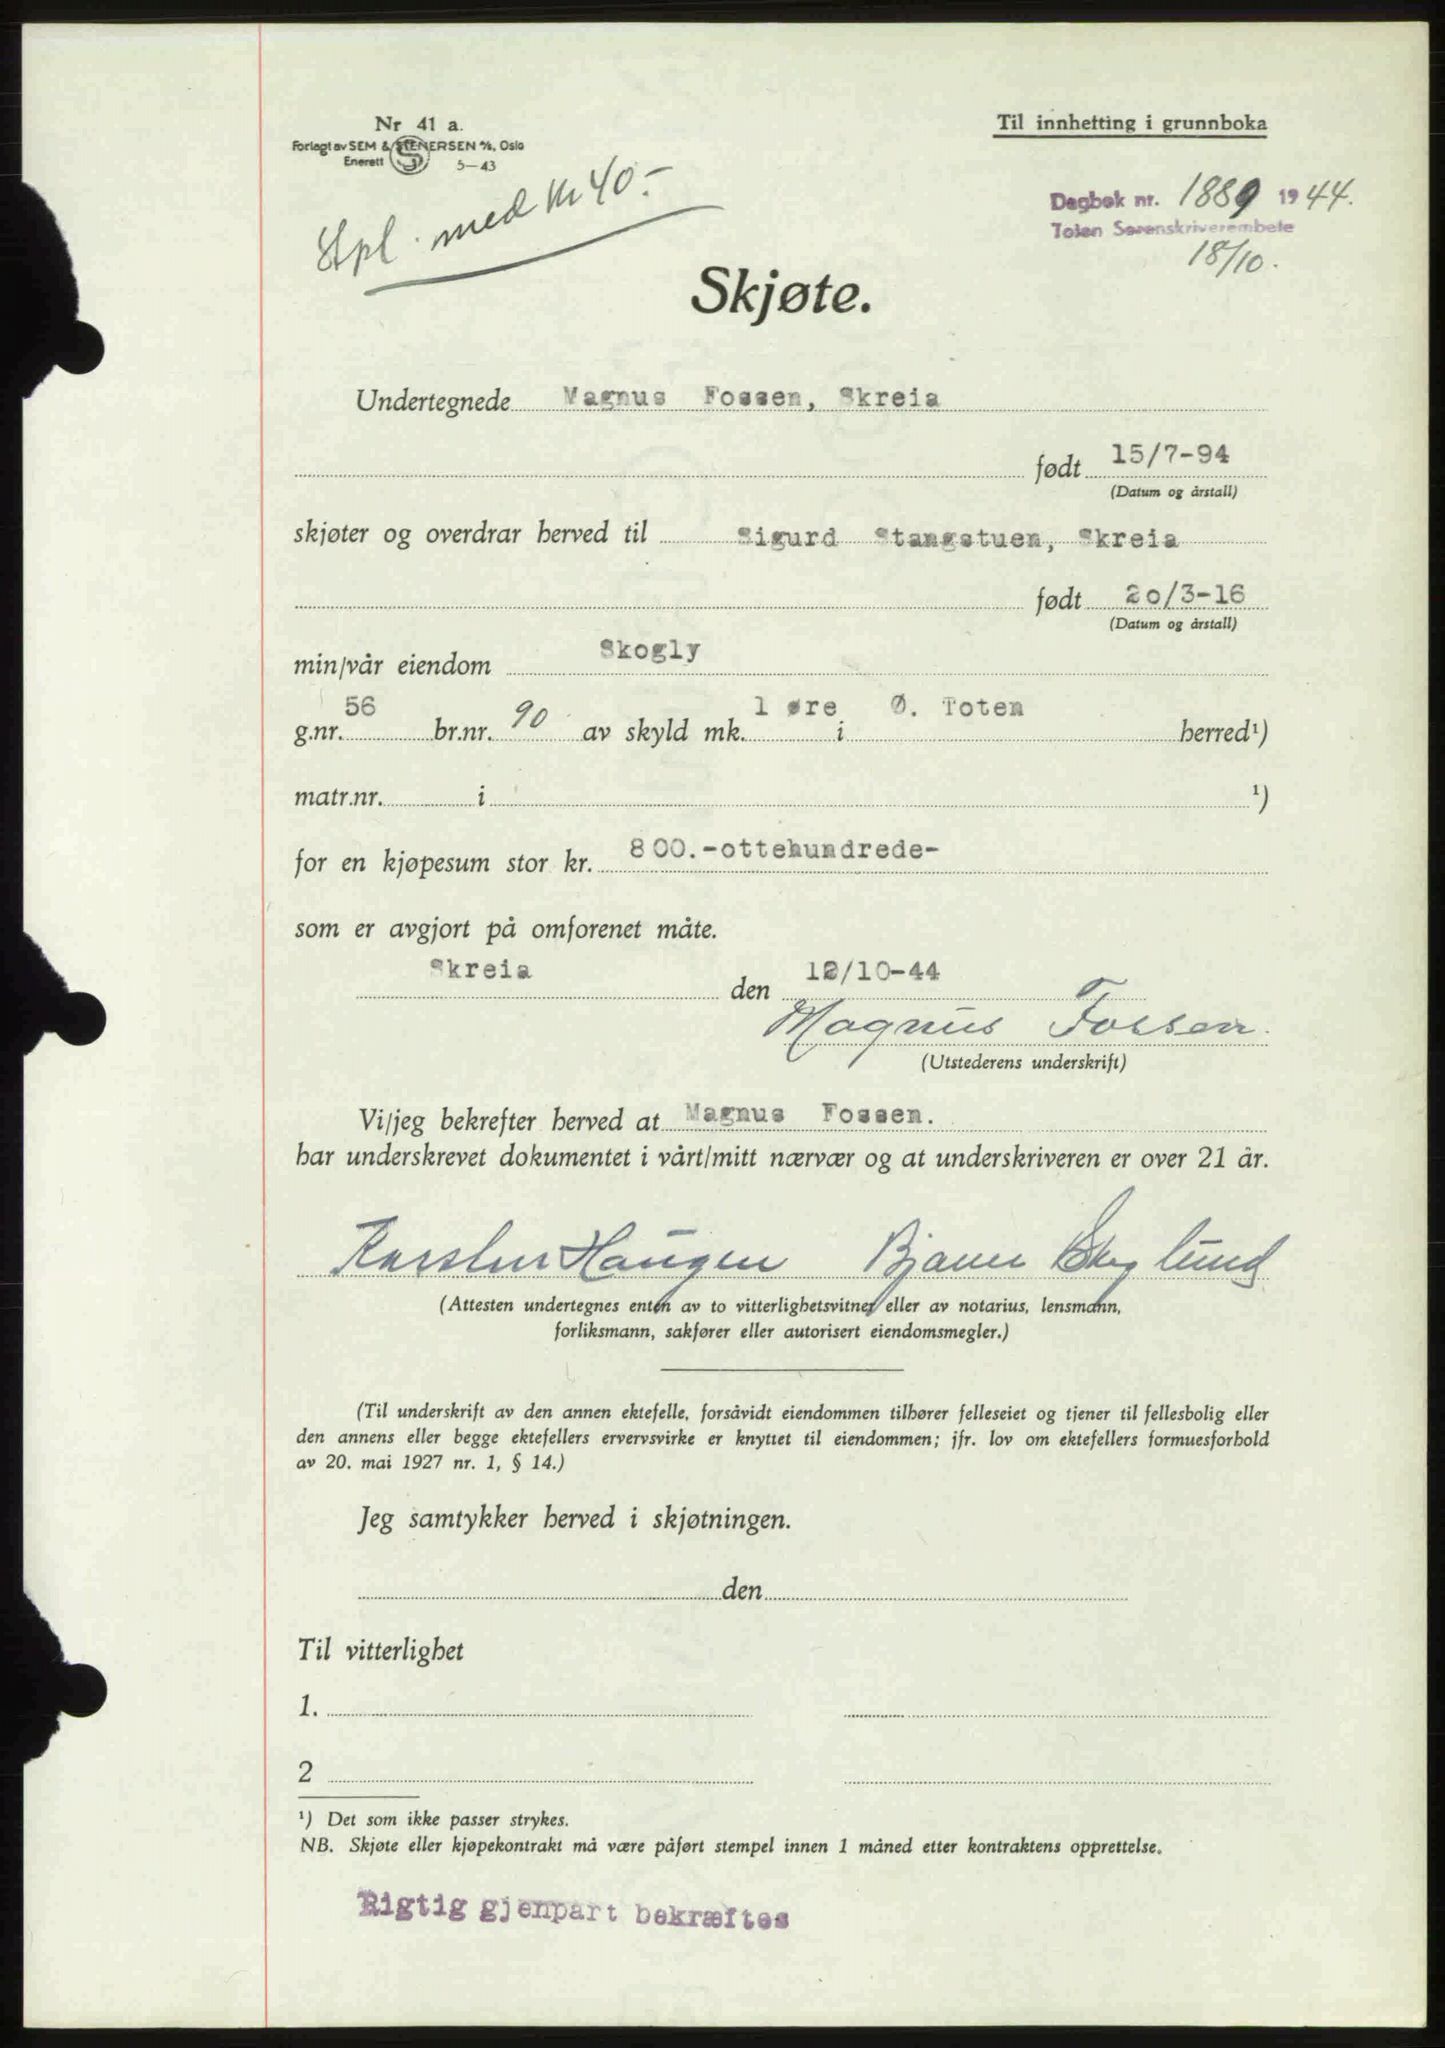 Nr 41 a.
Forlagt av SEM & STENERSEN A/S, Oslo
Enerett S 5-43
Til innhefting i grunnboka
Stpl. med kr 40.-
Dagbok nr. 1889 1944.
Toten Sorenskriverembete
18/10.
Skjøte.
Undertegnede Magnus Fossen, Skreia
født 15/7-94
(Datum og årstall)
skjøter og overdrar herved til Sigurd Stangstuen, Skreia
født 20/3-16
(Datum og årstall)
min/vår eiendom Skogly
g.nr. 56 br.nr. 90 av skyld mk. 1 øre i Ø. Toten herred¹)
matr.nr. i ¹)
for en kjøpesum stor kr. 800.-ottehundrede-
som er avgjort på omforenet måte.
Skreia den 12/10-44
Magnus Fossen.
(Utstederens underskrift)
Vi/jeg bekrefter herved at Magnus Fossen.
har underskrevet dokumentet i vårt/mitt nærvær og at underskriveren er over 21 år.
Karsten Haugen Bjarne
(Attesten undertegnes enten av to vitterlighetsvitner eller av notarius, lensmann,
forliksmann, sakfører eller autorisert eiendomsmegler.)
(Til underskrift av den annen ektefelle, forsåvidt eiendommen tilhører felleseiet og tjener til fellesbolig eller
den annens eller begge ektefellers ervervsvirke er knyttet til eiendommen; jfr. lov om ektefellers formuesforhold
av 20. mai 1927 nr. 1, § 14.)
Jeg samtykker herved i skjøtningen.
den
Til vitterlighet
1.
2
¹) Det som ikke passer strykes.
NB. Skjøte eller kjøpekontrakt må være påført stempel innen 1 måned etter kontraktens opprettelse.
Rigtig gjenpart bekræftes